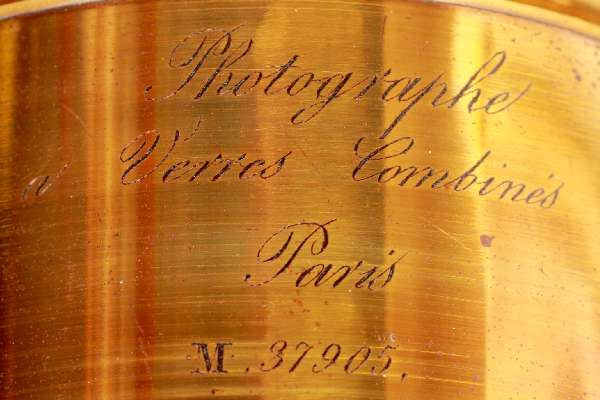 Photographe
à Verres Combinés
Paris
M. 37905.